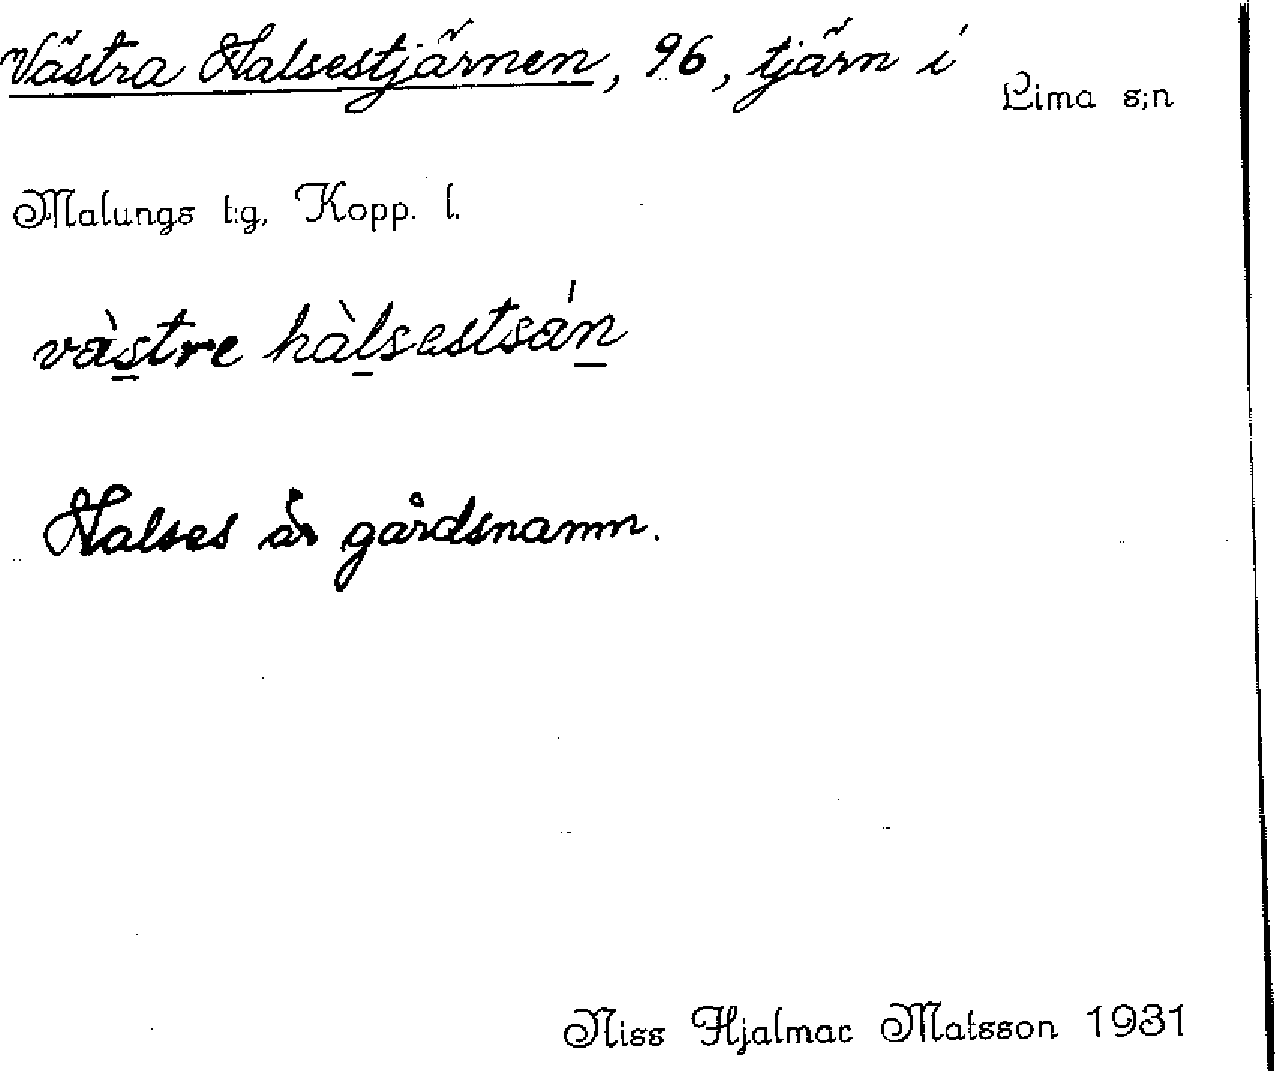 Västra Halsestjärnen, 96, tjärn i Lima s:n
Malungs t:g, Kopp. l.
västre hàlsestsán
Halses är gårdsnamn.
Niss Hjalmar Matsson 1931